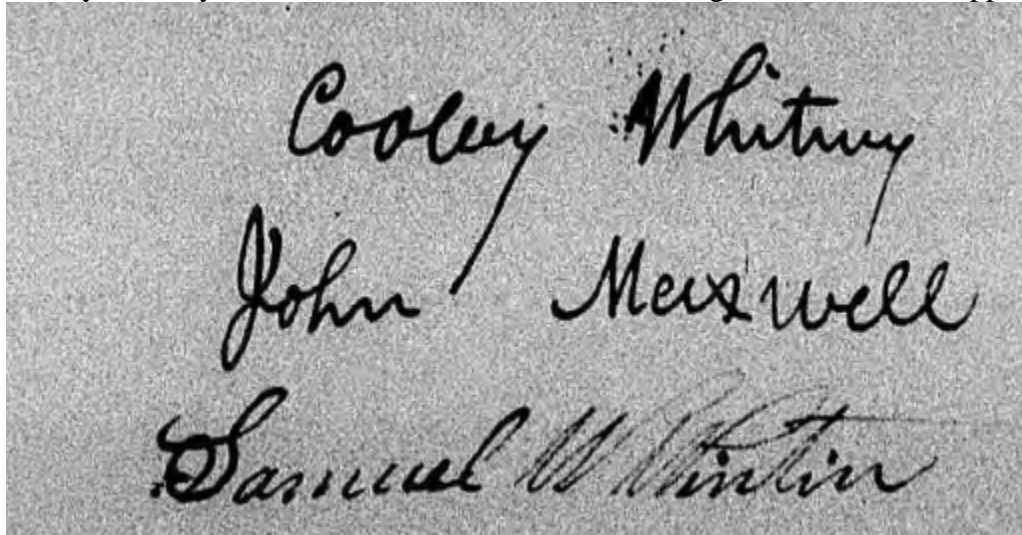 Cooley Whitney
John Maxwell
Samuel W